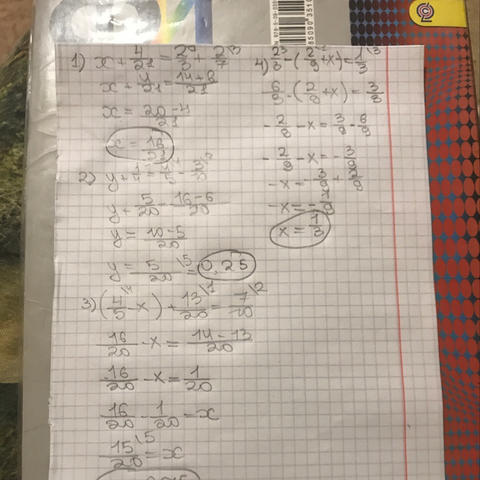 1) x + 4/21 = 2/3 \7 + 2/7 \3
x + 4/21 = 14+6/21
x = 20-4/21
x = 16/21
2) y + 1/4 = 4/5 - 3/
y + 5/20 = 16-6/20
y = 10-5/20
y = 5/20 \5 = 0,25
3) (4/5 \4 - x) + 13/20 \1 = 7/10 \2
16/20 - x = 14-13/20
16/20 - x = 1/20
16/20 - 1/20 = x
15/20 \5 = x
4) 2/3 \3 - (2/9 + x) = 1/3 \3
6/9 - (2/9 + x) = 3/9
- 2/9 - x = 3/9 - 6/9
- 2/9 - x = - 3/9
-x = - 3/9 + 2/9
-x = -
x =